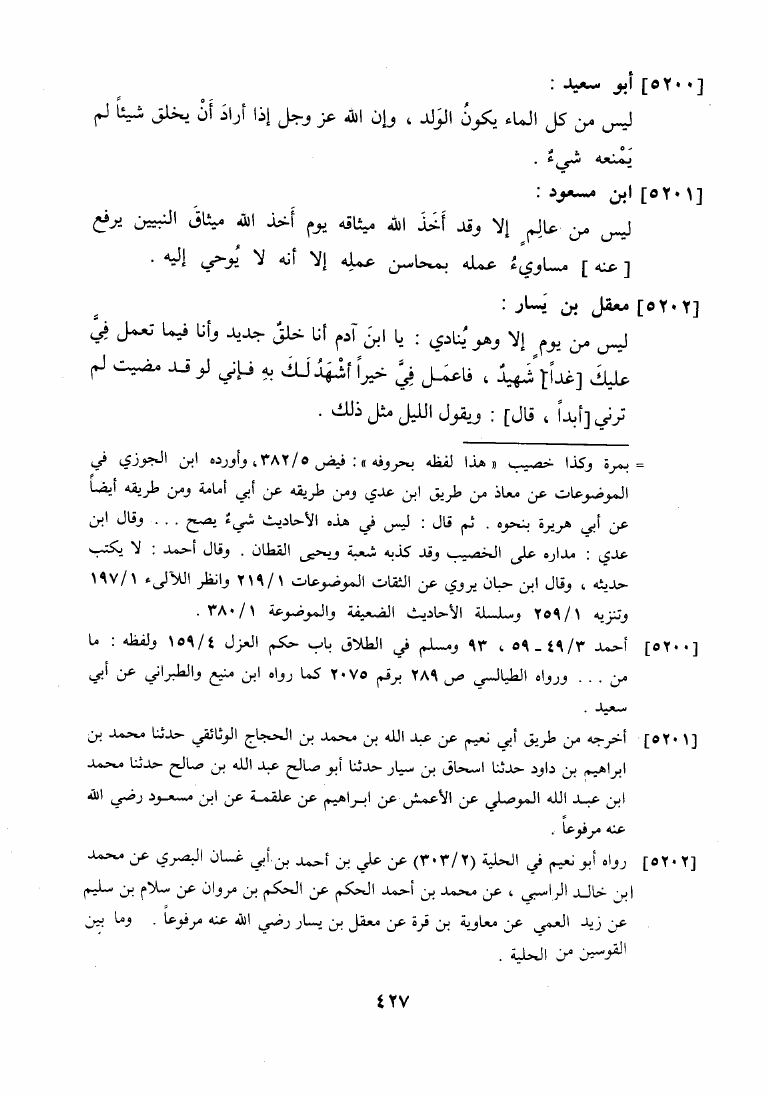 [٥٢٠٠] أبو سعيد :
ليس من كل الماء يكونُ الوَلد ، وإن الله عز وجل إذا أرادَ أَنْ يخلق شيئاً لم
يَمْنعه شيءٌ .
[٥٢٠١] ابن مسعود :
ليس من عالِمٍ إلا وقد أَخَذَ الله ميثاقه يوم أَخذ الله ميثاقَ النبيين يرفع
[ عنه ] مساويءُ عمله بمحاسن عملِه إلا أنه لا يُوحي إليه .
[٥٢٠٢] معقل بن يَسار :
ليس من يومٍ إلا وهو يُنادي : يا ابنَ آدم أنا خلقٌ جديد وأنا فيما تعمل فِيَّ
عليكَ [غداً] شَهيدٌ ، فاعمَل فِيَّ خيراً أشْهَدُ لَكَ بهِ فإني لو قد مضيت لم
ترني[أبداً ، قال] : ويقول الليل مثل ذلك .
= بمرة وكذا خصيب « هذا لفظه بحروفه » : فيض ٣٨٢/٥، وأورده ابن الجوزي في
الموضوعات عن معاذ من طريق ابن عدي ومن طريقه عن أبي أمامة ومن طريقه أيضاً
عن أبي هريرة بنحوه . ثم قال : ليس في هذه الأحاديث شيءٌ يصح ... وقال ابن
عدي : مداره على الخصيب وقد كذبه شعبة ويحيى القطان . وقال أحمد : لا يكتب
حديثه ، وقال ابن حبان يروي عن الثقات الموضوعات ٢١٩/١ وانظر اللآلىء ١٩٧/١
وتنزيه ٢٥٩/١ وسلسلة الأحاديث الضعيفة والموضوعة ٣٨٠/١ .
[٥٢٠٠] أحمد ٤٩/٣ - ٥٩ ، ٩٣ ومسلم في الطلاق باب حكم العزل ١٥٩/٤ ولفظه : ما
من ... ورواه الطيالسي ص ٢٨٩ برقم ٢٠٧٥ كما رواه ابن منيع والطبراني عن أبي
سعيد .
[٥٢٠١] أخرجه من طريق أبي نعيم عن عبد الله بن محمد بن الحجاج الوثائقي حدثنا محمد بن
ابراهيم بن داود حدثنا اسحاق بن سيار حدثنا أبو صالح عبد الله بن صالح حدثنا محمد
ابن عبد الله الموصلي عن الأعمش عن ابراهيم عن علقمة عن ابن مسعود رضي الله
عنه مرفوعاً .
[٥٢٠٢] رواه أبو نعيم في الحلية (٣٠٣/٢) عن علي بن أحمد بن أبي غسان البصري عن محمد
ابن خالد الراسبي ، عن محمد بن أحمد الحكم عن الحكم بن مروان عن سلام بن سليم
عن زيد العمي عن معاوية بن قرة عن معقل بن يسار رضي الله عنه مرفوعاً . وما بين
القوسين من الحلية .
٤٢٧